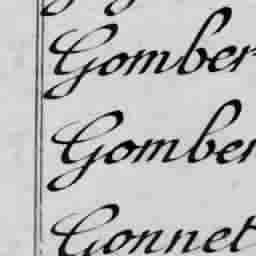 Gomber
Gomber
Gonnet